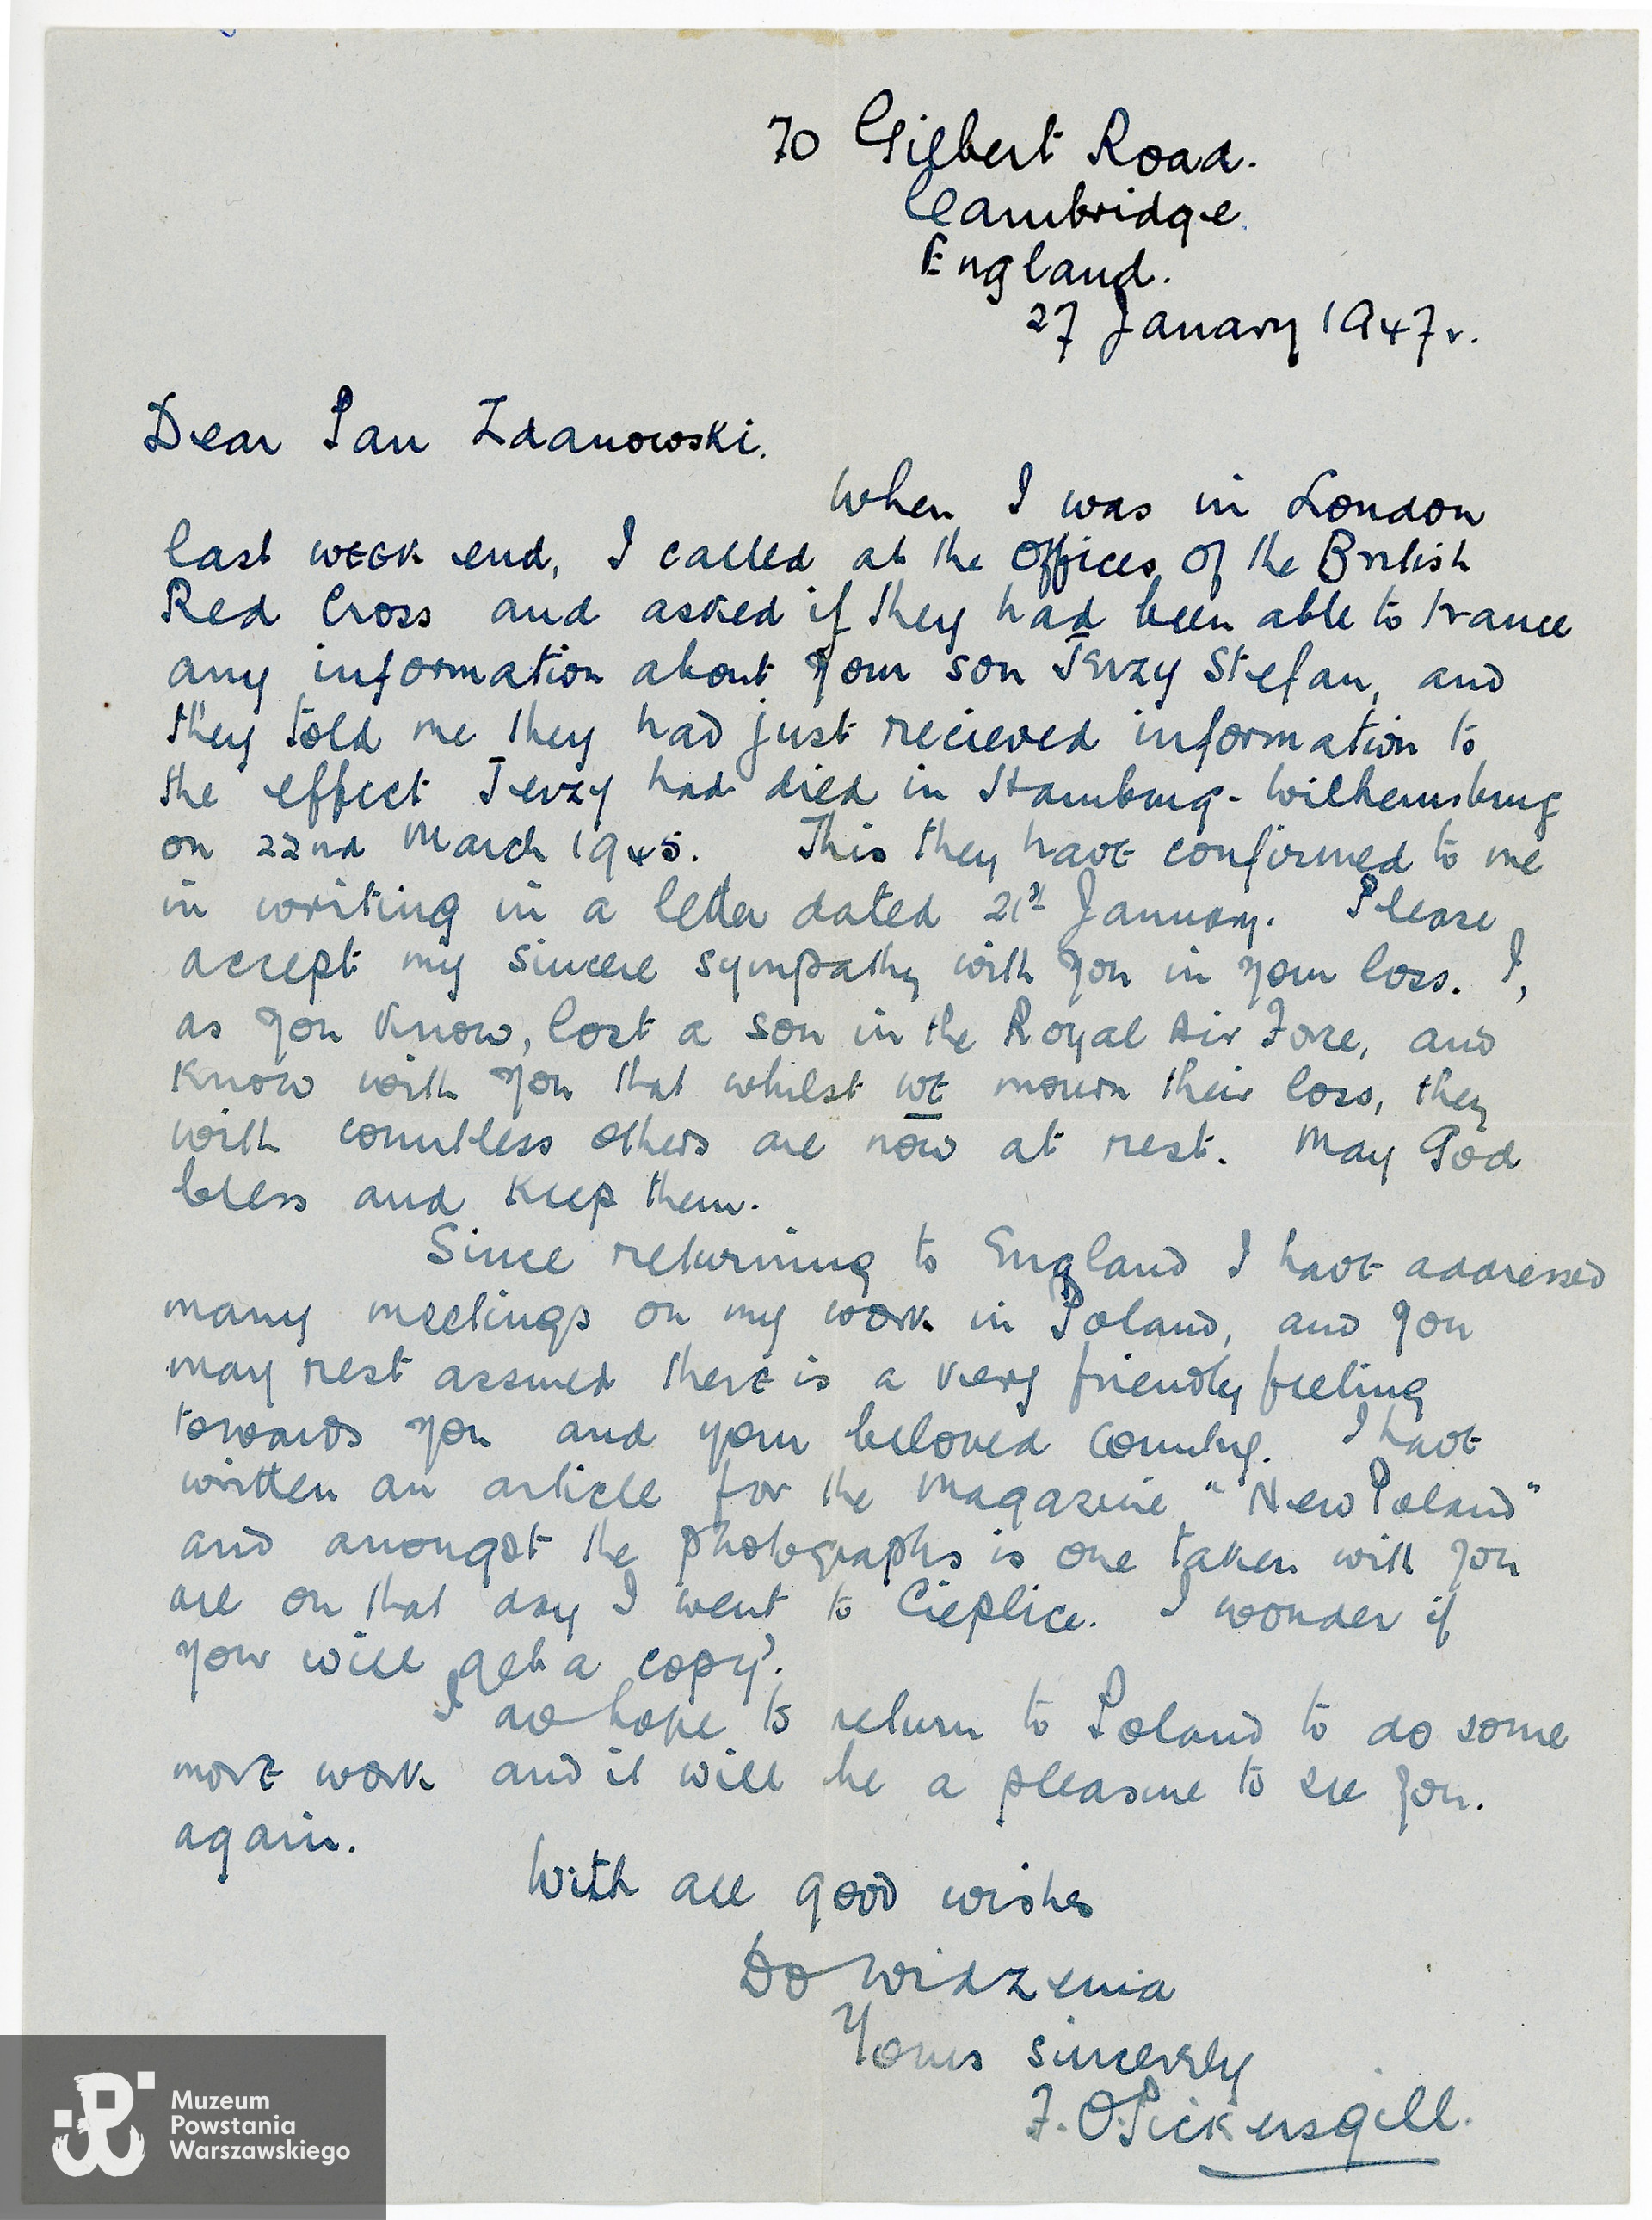 70 Gilbert Road.
Cambridge
England.
27 January 1947r.
Dear Pan Zdanowski.
When I was in London
last week end, I called at the offices of the British
Red Cross and asked if they had been able to trance
any information about your son Jerzy Stefan, and
they told me they had just recieved information to
the effect Jerzy had died in Hamburg-Wilhemsburg
on 22nd March 1945. This they have confirmed to me
in writing in a letter dated 21st January. Please
accept my sincere sympathy with you in your loss. I,
as you know, lost a son in the Royal Air Force, and
know with you that whilst we mourn their loss, they
with countless others are now at rest. May God
bless and keep them.
Since returning to England I have addressed
many meetings on my work in Poland, and you
may rest assured there is a very friendly feeling
towards you and your beloved country. I have
written an article for the magazine "New Poland"
and amongst the photographs is one taken with you
all on that day I went to Cieplice. I wonder if
you will get a copy?
I do hope to return to Poland to do some
more work and it will be a pleasure to see you.
again.
With all good wishes
Do widzenia
Yours sincerely
F. O. Pickersgill.
Muzeum
Powstania
Warszawskiego